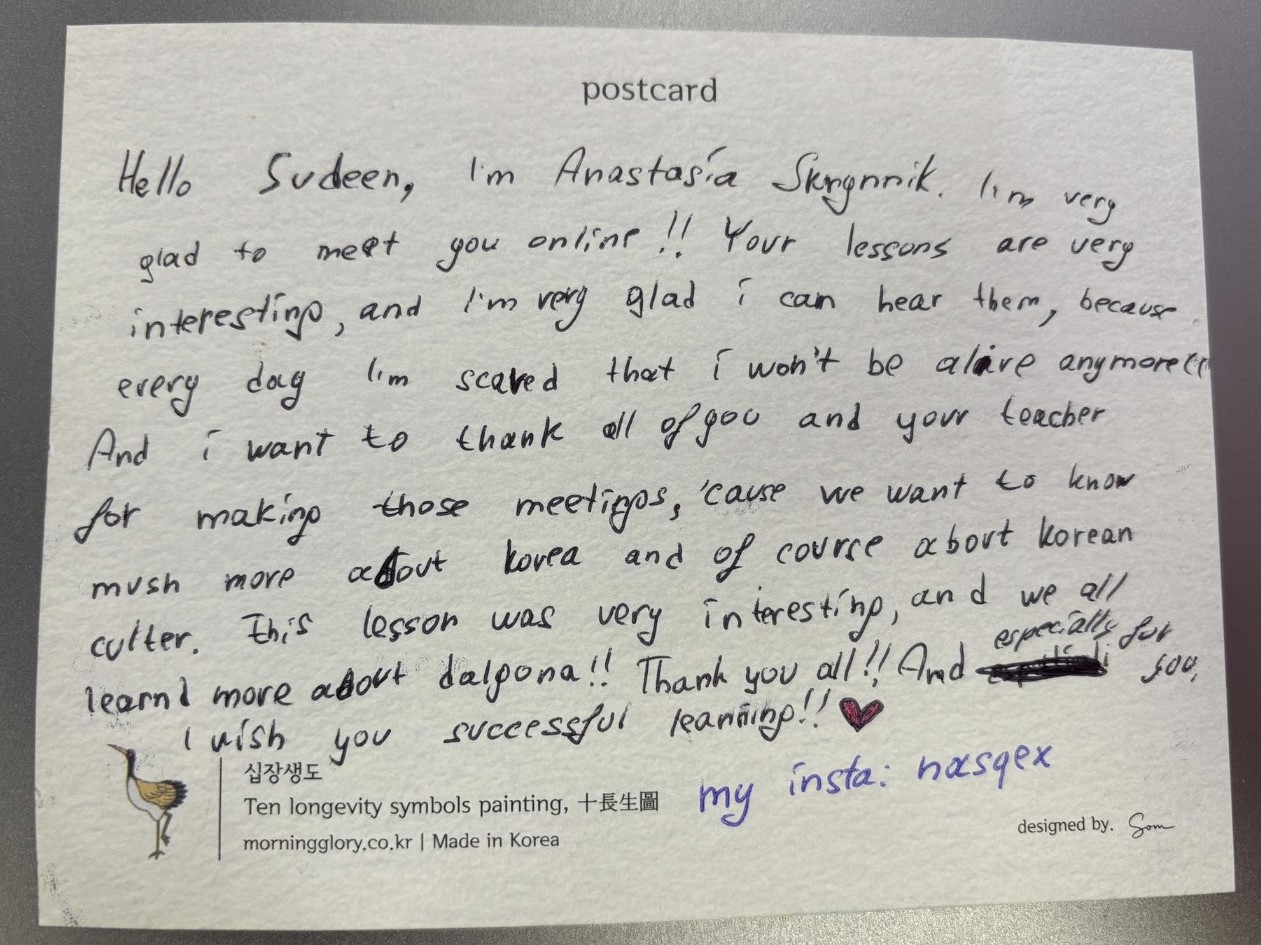 postcard
Hello Sudeen, I'm Anastasia Skrynnik. I'm very
glad to meet you online!! Your lessons are very
interesting, and I'm very glad i can hear them, because
every day I'm scared that i won't be alive anymore((
And i want to thank all of you and your teacher
for making those meetings, 'cause we want to know
mush more about korea and of course about korean
culter. This lesson was very interesting, and we all
learnd more about dalgona!! Thank you all!! And especially for you,
I wish you successful learning!! ❤
십장생도
Ten longevity symbols painting, 十長生圖
morningglory.co.kr | Made in Korea
my insta: nasqex
designed by. Som